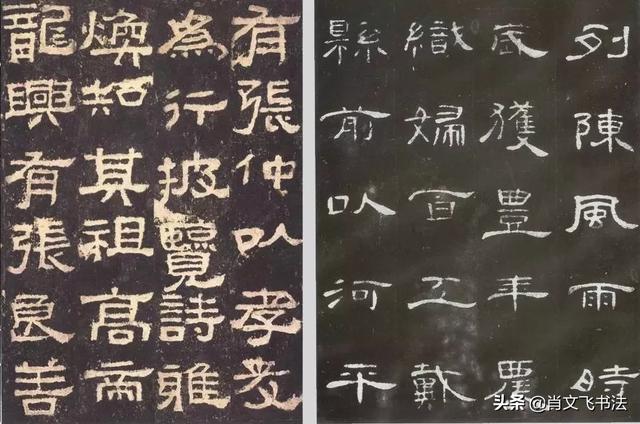 有張仲以孝友
為行披覽詩雅
煥知其祖高帝
龍興有張良善
列陳風雨時
歲獲豊年農
織婦百工戴
縣前以河平
头条 @肖文飞书法